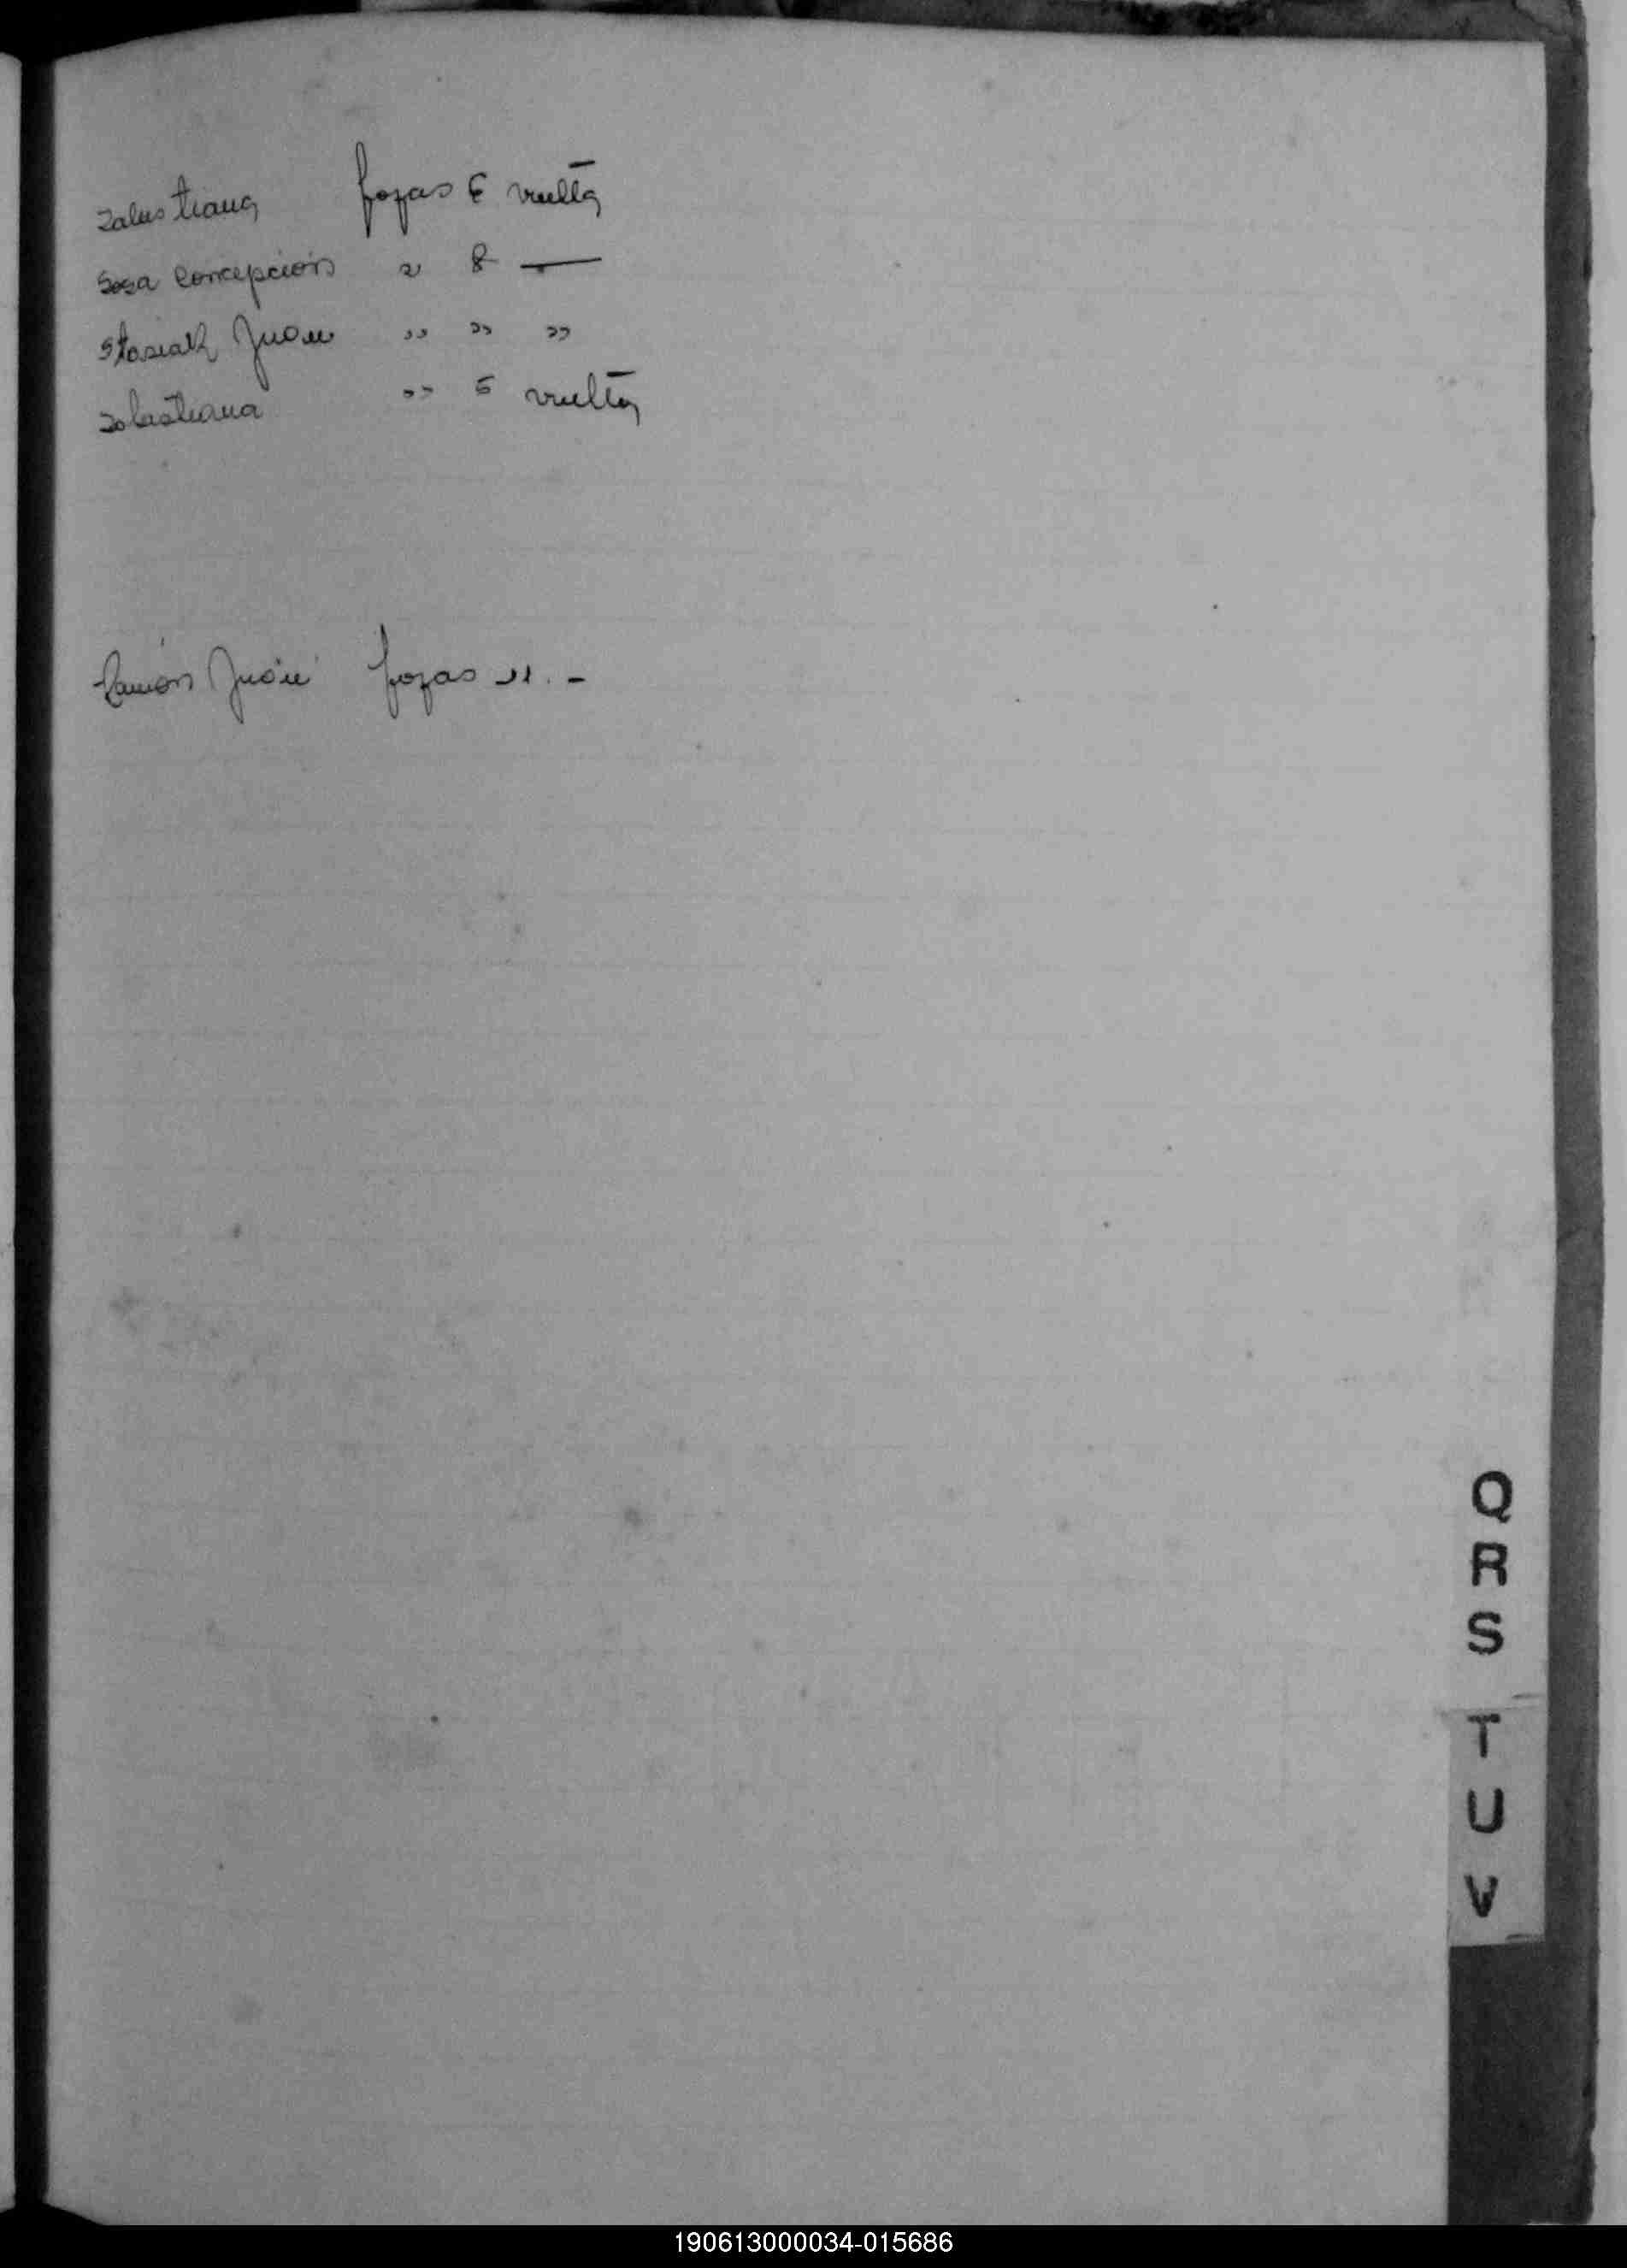 Salustiana fojas 6 vuelta
Sosa Concepción " 8 —
Stasiak Juan " " "
Sebastiana " 5 vuelta
Ramón Juan fojas 11. -
Q
R
S
T
U
V
190613000034-015686